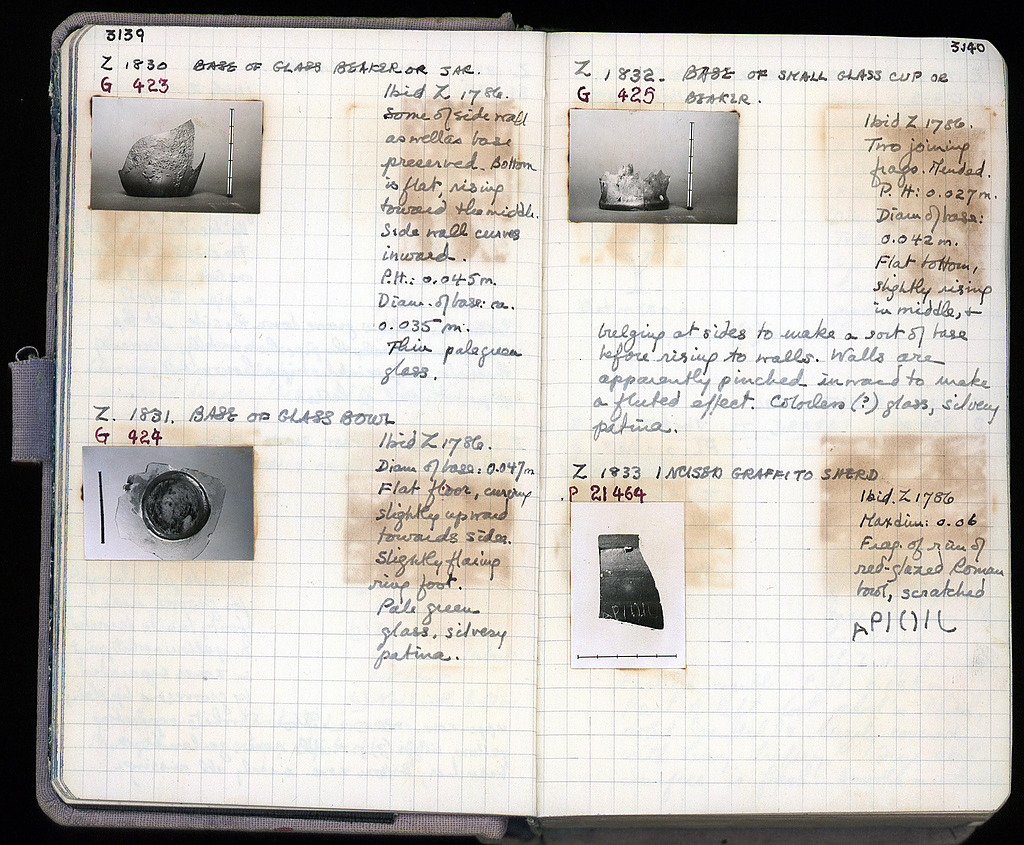 3139
Z 1830 BASE OF GLASS BEAKER OR JAR.
G 423
Ibid Z 1786.
Some of side wall
as well as base
preserved. Bottom
is flat, rising
toward the middle.
Side wall curves
inward.
P.H.: 0.045 m.
Diam. of base: ca.
0.035 m.
Thin pale green
glass.
Z. 1831. BASE OF GLASS BOWL
G 424
Ibid Z 1786.
Diam of base: 0.047 m
Flat floor, curving
slightly upward
towards sides.
Slightly flaring
ring foot.
Pale green
glass, silvery
patina.
3140
Z 1832. BASE OF SMALL GLASS CUP OR
G 425 BEAKER.
Ibid Z 1786.
Two joining
frags. Mended.
P. H: 0.027 m.
Diam of base:
0.042 m.
Flat bottom,
slightly rising
in middle, +
bulging at sides to make a sort of base
before rising to walls. Walls are
apparently pinched inward to make
a fluted effect. Colorless (?) glass, silvery
patina.
Z 1833 INCISED GRAFFITO SHERD
P 21464
Ibid. Z 1786
Max dim: 0.06
Frag. of rim of
red-glazed Roman
bowl, scratched